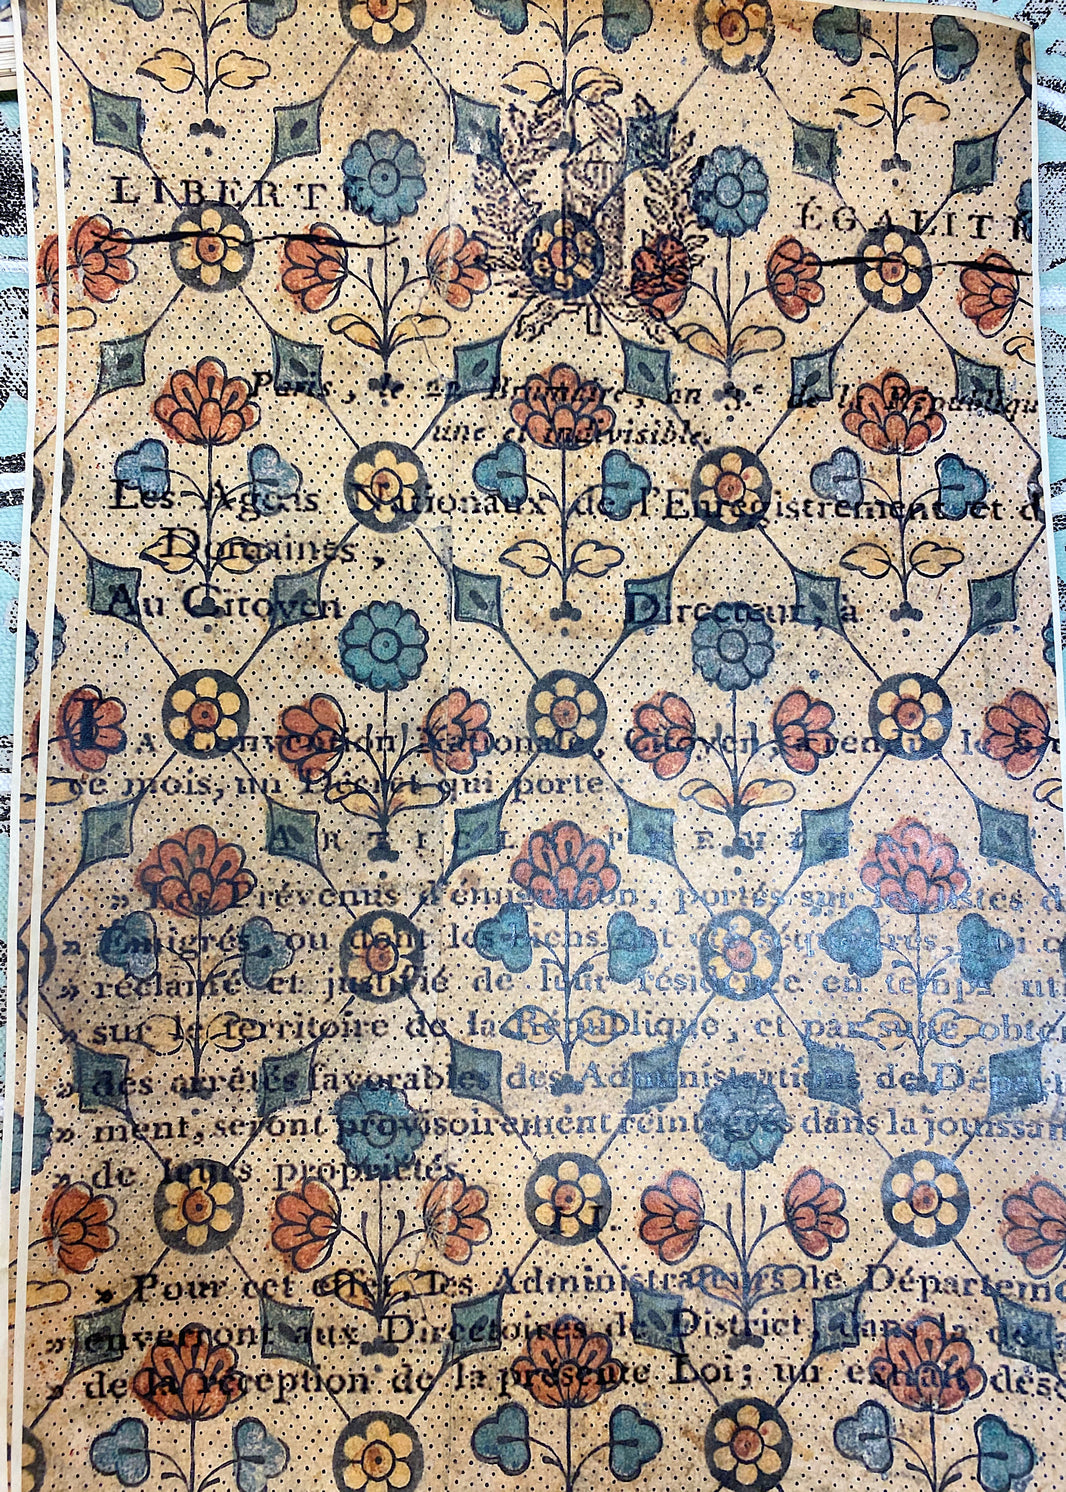 LIBERTÉ
ÉGALITÉ
Paris, le 22 Brumaire, an 3.e de la République
une et indivisible.
Les Agens Nationaux de l'Enregistrement et d
Domaines,
Au Citoyen Directeur, à
LA Convention Nationale, Citoyen, a rendu, le
ce mois, un Décret qui porte :
ARTICLE PREMIE
» Les Prévenus d'émigration, portés sur les listes d
» Emigrés, ou dont les biens ont été séquestrés, qui o
» réclamé et justifié de leur résidence en temps uti
» sur le territoire de la République, et par suite obten
» des arrêtés favorables des Administrations de Départe
» ment, seront provisoirement réintégrés dans la jouissan
» de leurs propriétés.
II.
» Pour cet effet, les Administrateurs de Départeme
» enverront aux Directoires de District, dans la
» de la réception de la présente Loi; un extrait